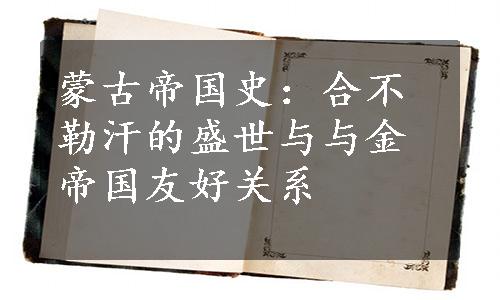 蒙古帝国史：合不
勒汗的盛世与与金
帝国友好关系